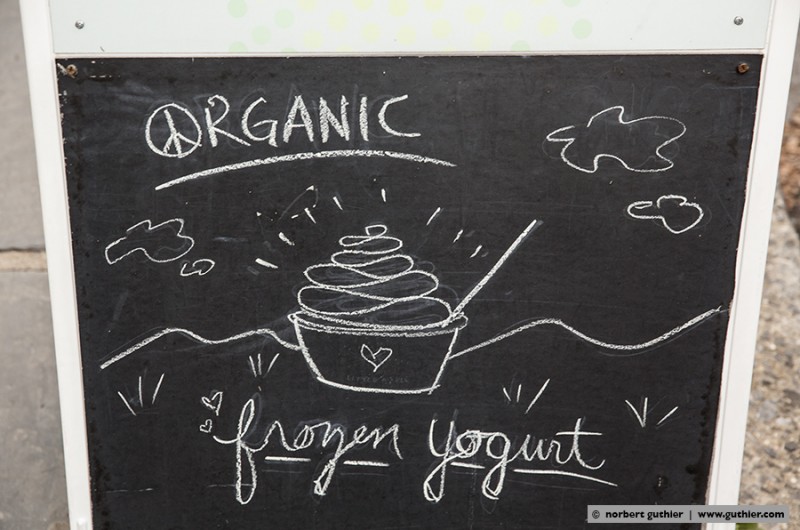 ORGANIC
frozen yogurt
© norbert guthier | www.guthier.com